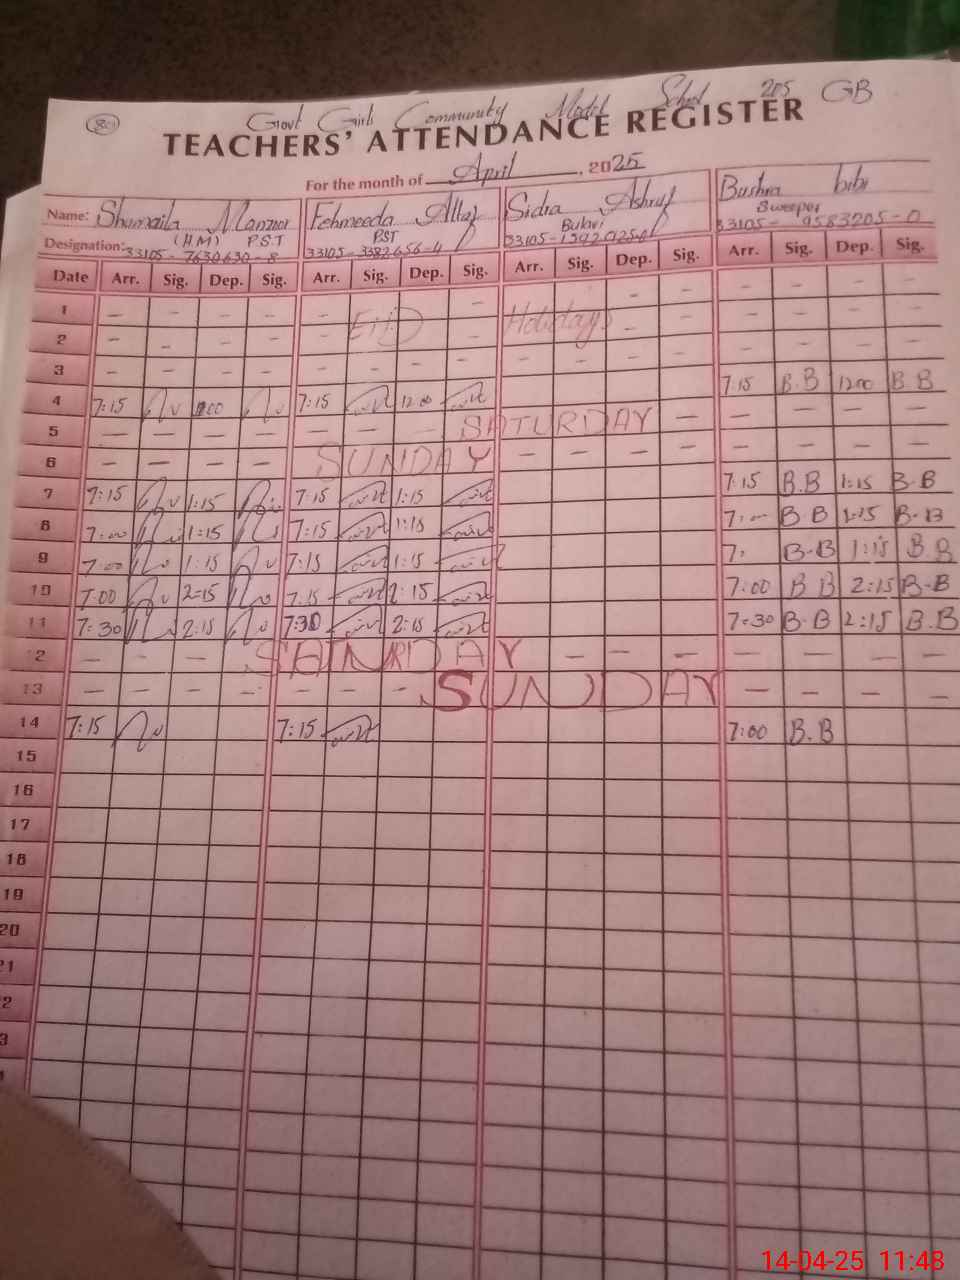 80
Govt Girls Community Model School 205 GB
TEACHERS' ATTENDANCE REGISTER
For the month of April, 2025
Name: Shumaila Manzoor Fehmeeda Altaf Sidra Ashraf Bushra bibi
Designation: (H.M) P.S.T PST Sweeper
33105-7630630-8 33105-3382656-4 33105- 33105-9583205-0
Date Arr. Sig. Dep. Sig. Arr. Sig. Dep. Sig. Arr. Sig. Dep. Sig. Arr. Sig. Dep. Sig.
1 - - - - - - - - - - - - - -
2 - - - - EID Holidays - - - - -
3 - - - - - - - - - - - - - - - -
4 7:15 7:15 12 00 7:15 B.B 1200 B B
5 - - - - - - - SATURDAY - - - - -
6 - - - - SUNDAY - - - - - - - -
7 7:15 1:15 7:15 1:15 7:15 B.B 1:15 B-B
8 7:00 1:15 7:15 1:15 7:00 B B 1:15 B-B
9 7:00 1:15 7:15 1:15 7: B-B 1:15 B B
10 7:00 2:15 7:15 2:15 7:00 B B 2:15 B-B
11 7:30 2:15 7:30 2:15 7:30 B-B 2:15 B.B
12 - - - SATURDAY - - - - - - - -
13 - - - - - - - SUNDAY - - - -
14 7:15 7:15 7:00 B.B
15
16
17
18
19
20
21
2
3
14-04-25 11:48